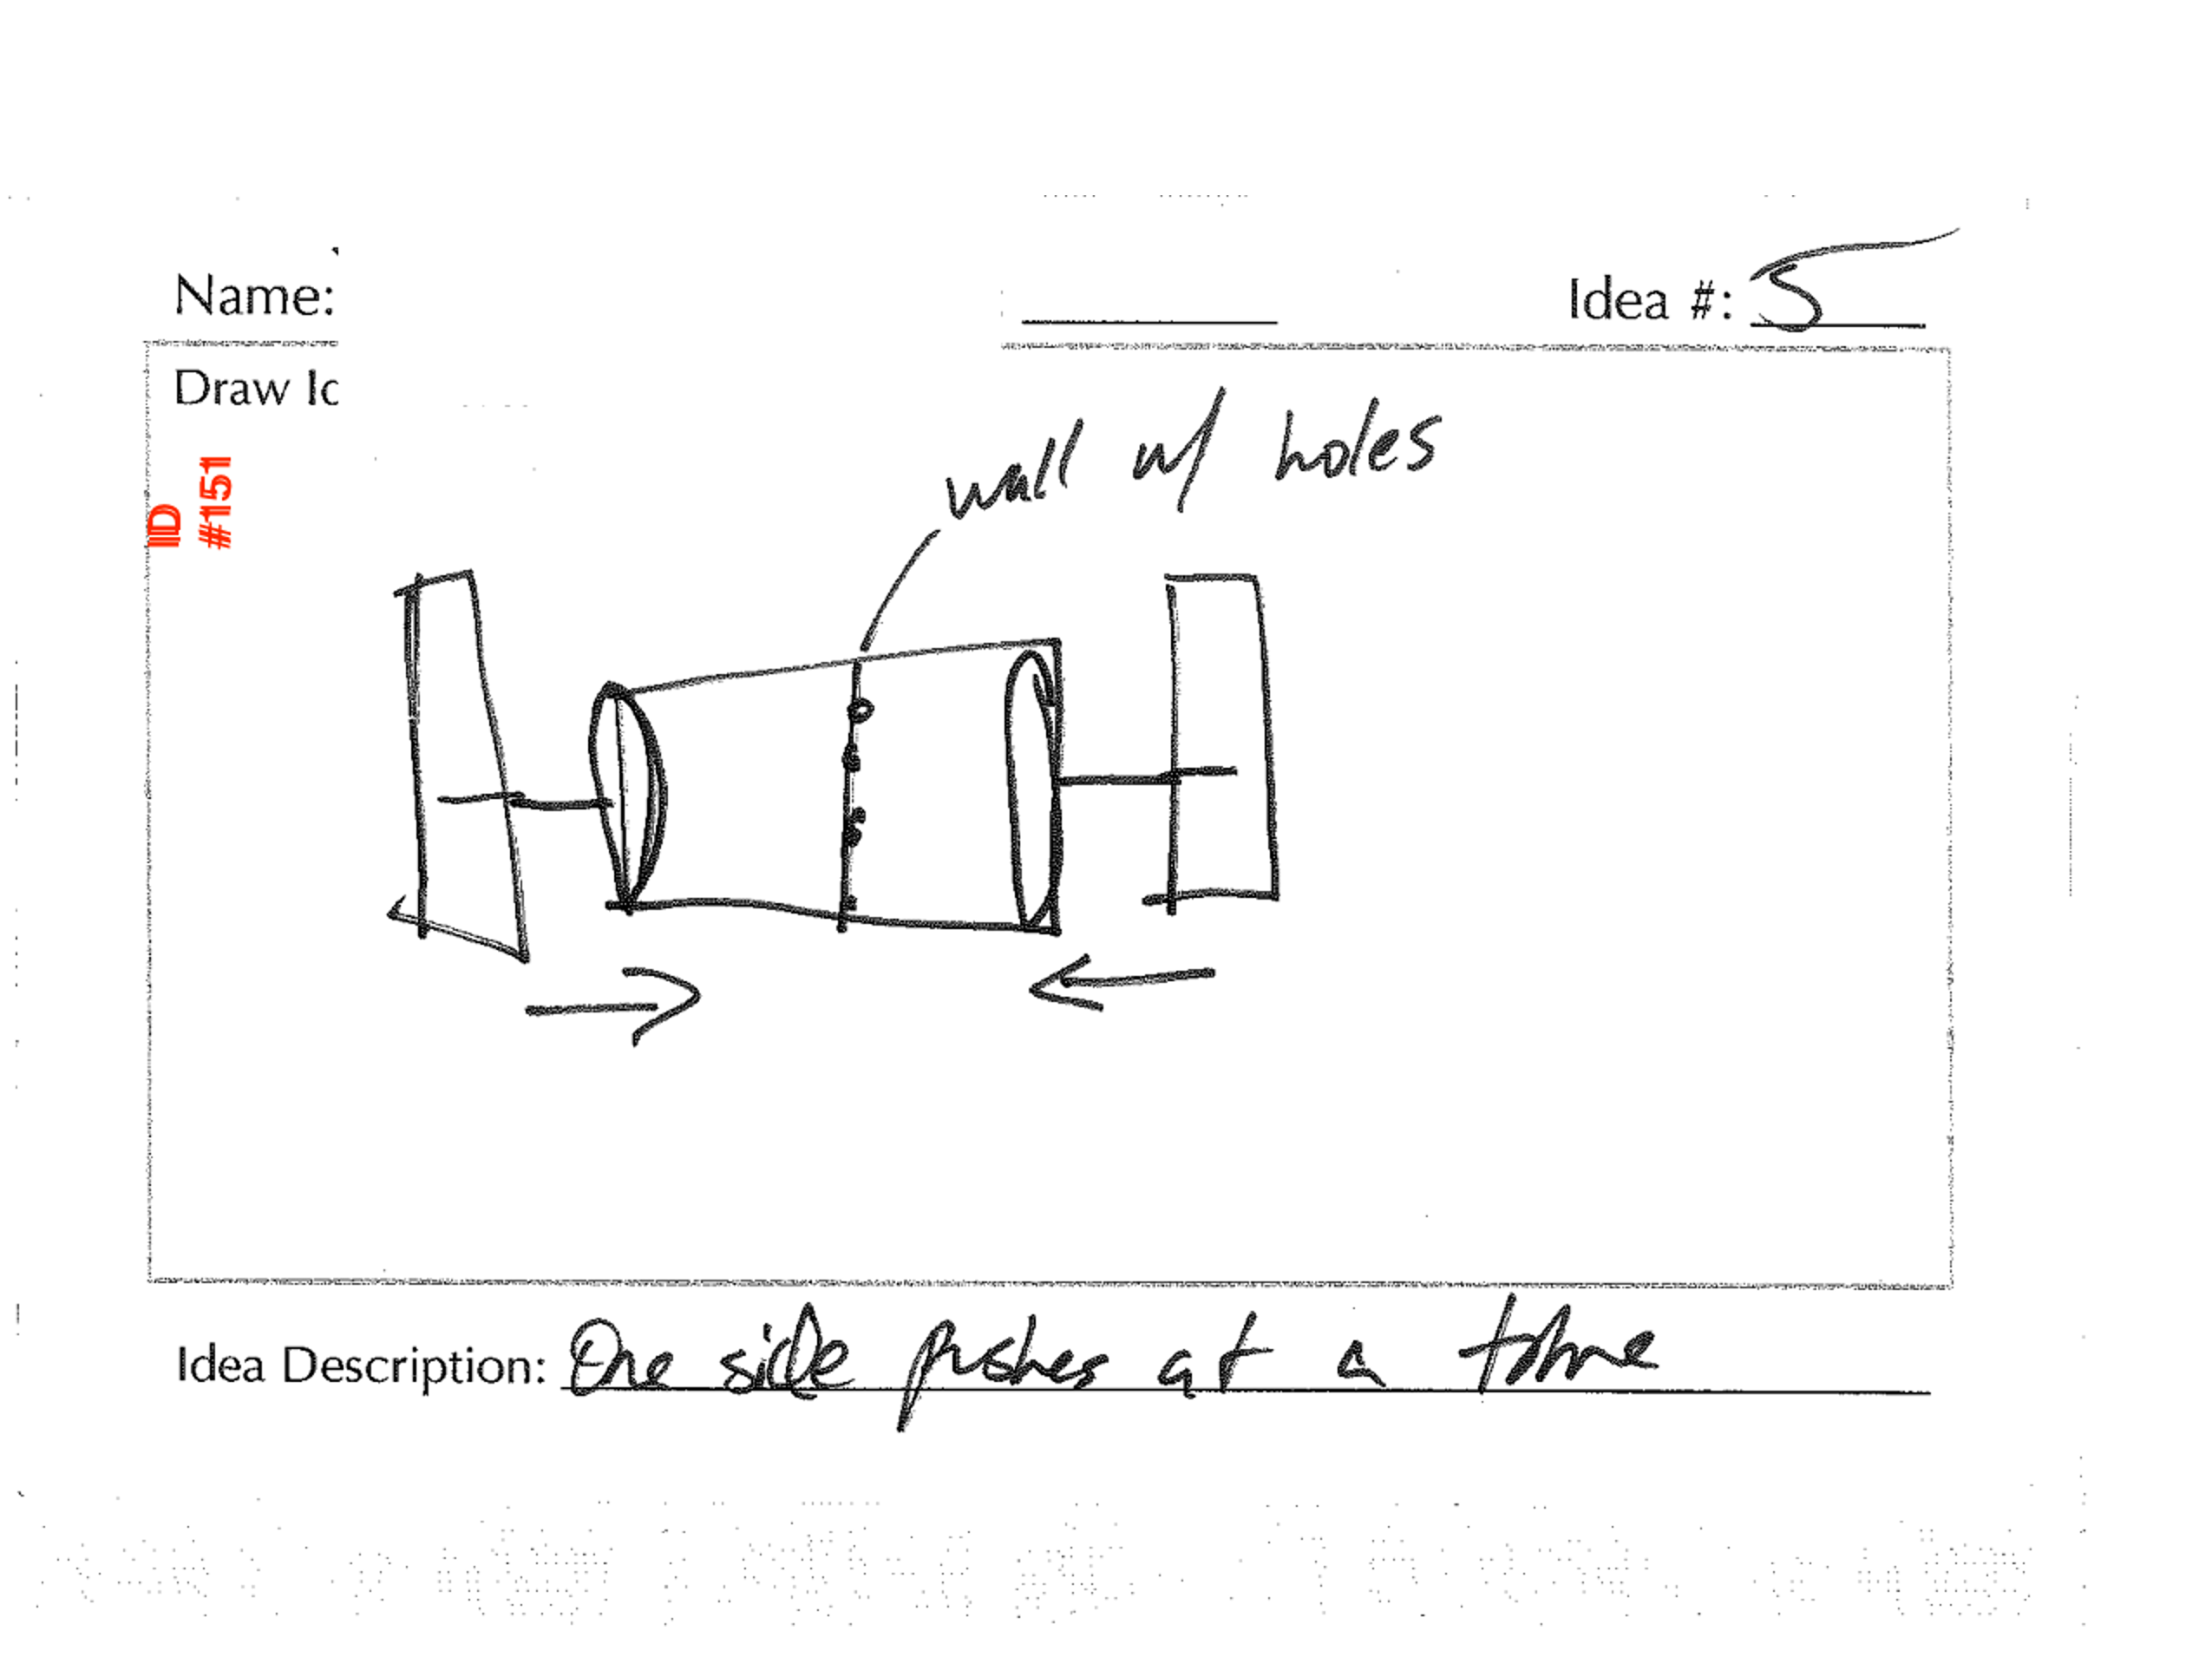 Name:
Idea #: 5
Draw Id
ID
#151
wall w/ holes
Idea Description: One side pushes at a time